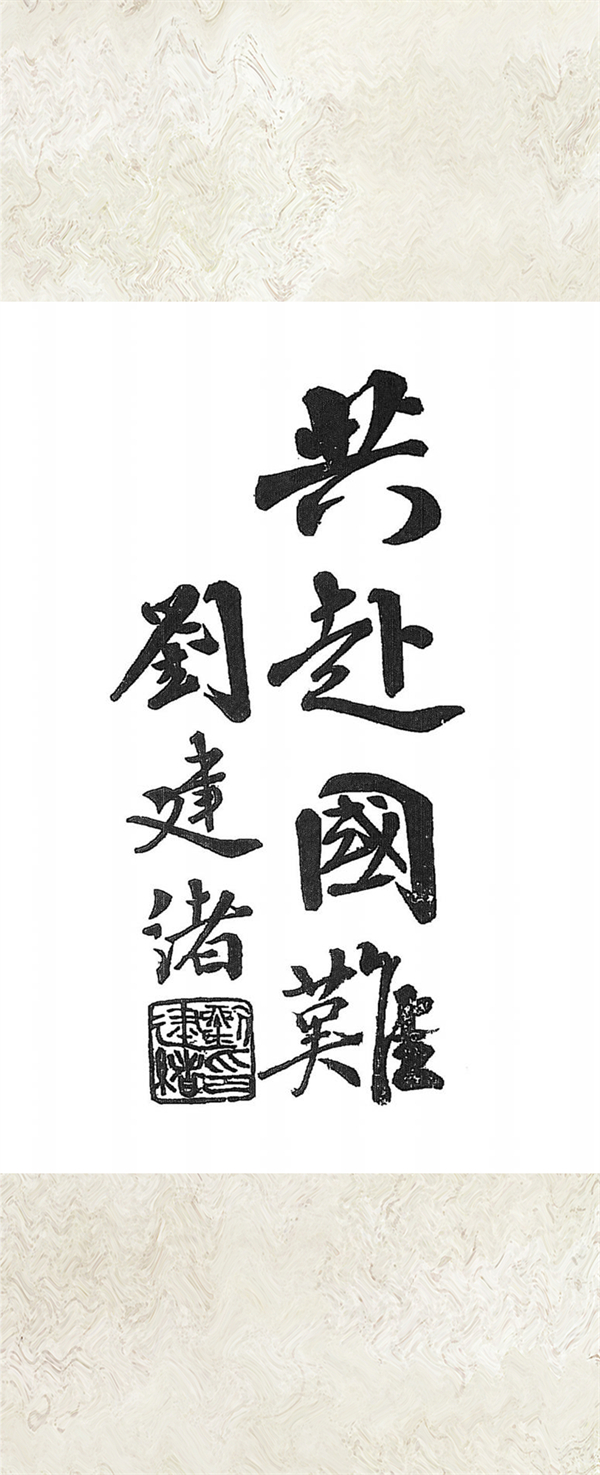 共赴國難
劉建緒
劉建緒印